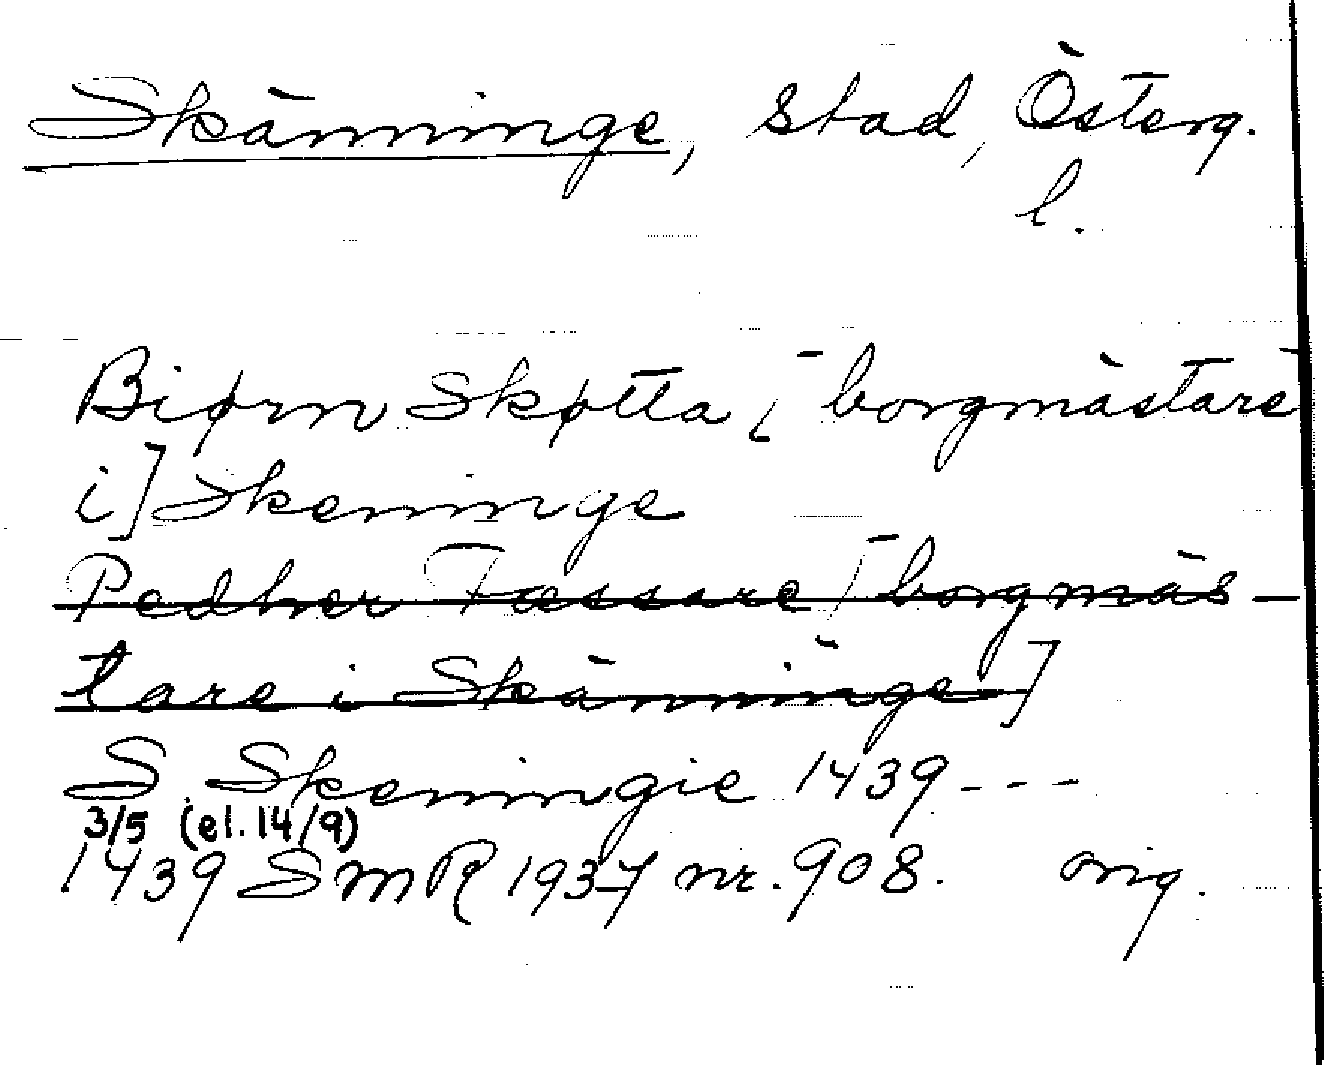 Skänninge, stad, Österg.
l.
Biørn Skøtta [borgmästare
i] Skeninge
Pedher Tassare [borgmäs-
tare i Skänninge]
S Skeningie 1439 ---
3/5 (el. 14/9)
1439 SMR 1937 nr. 908. orig.